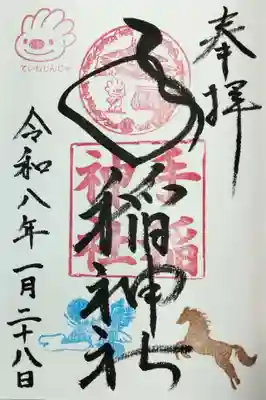 奉拝
ていねじんじゃ
手稲神社
手稲神社
令和八年一月二十八日